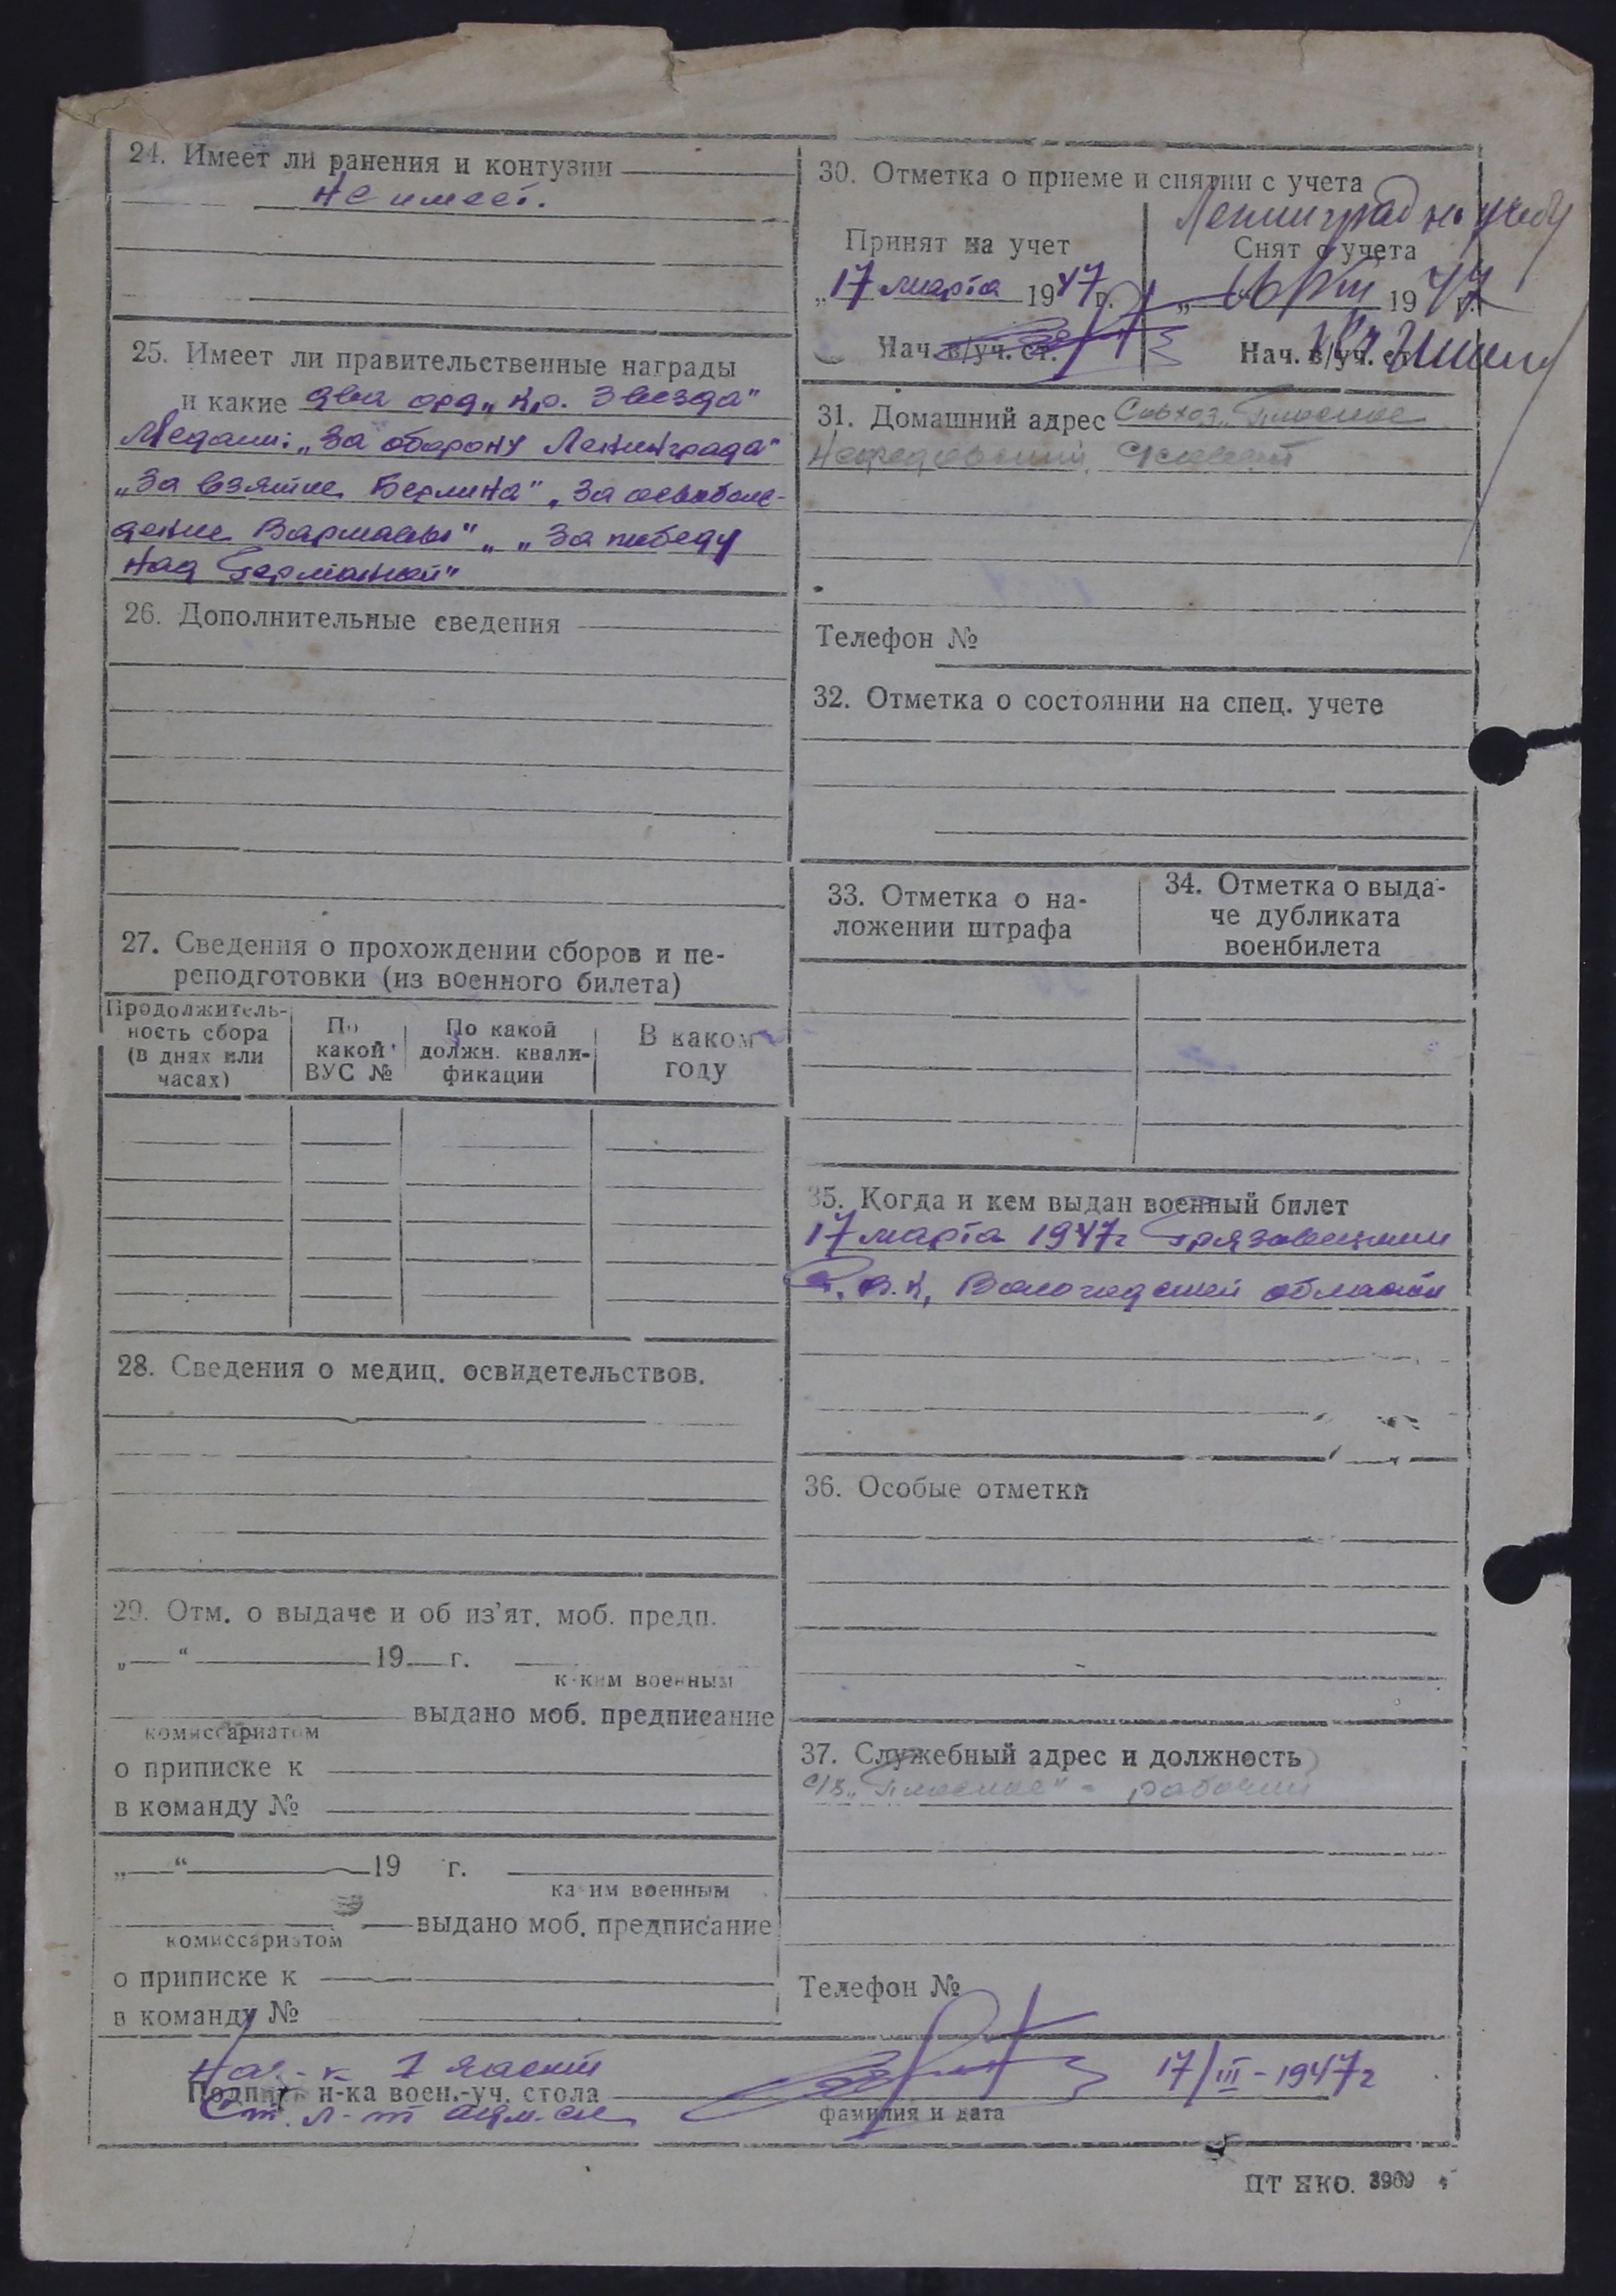 24. Имеет ли ранения и контузии
не имеет.
25. Имеет ли правительственные награды
и какие два орд. „Кр. Звезда“
Медали: „За оборону Ленинграда“
„За взятие Берлина“, „За освобож-
дение Варшавы“, „За победу
над Германией“
26. Дополнительные сведения
27. Сведения о прохождении сборов и пе-
реподготовки (из военного билета)
Продолжитель-
ность сбора
(в днях или
часах)
По
какой
ВУС №
По какой
должн. квали-
фикации
В каком
году
28. Сведения о медиц. освидетельствов.
29. Отм. о выдаче и об из’ят. моб. предп.
„ “ 19 г.
каким военным
выдано моб. предписание
комиссариатом
о приписке к
в команду №
„ “ 19 г.
каким военным
выдано моб. предписание
комиссариатом
о приписке к
в команду №
30. Отметка о приеме и снятии с учета
Ленинград на учебу
Принят на учет
„17 марта 1947 г.
Нач. в/уч. ст.
Снят с учета
„ 16/VIII 1947 г.
Нач. в/уч. ст.
31. Домашний адрес Совхоз „Плоское“
с/совет
Телефон №
32. Отметка о состоянии на спец. учете
33. Отметка о на-
ложении штрафа
34. Отметка о выда-
че дубликата
военбилета
35. Когда и кем выдан военный билет
17 марта 1947 г Грязовецким
Р.В.К, Вологодской области
36. Особые отметки
37. Служебный адрес и должность
с/з „Плоское“ - рабочий
Телефон №
Нач-к 1 части
Подпись н-ка воен.-уч. стола
Ст. л-т адм. сл.
17/III-1947 г
фамилия и дата
ЦТ НКО. 3969